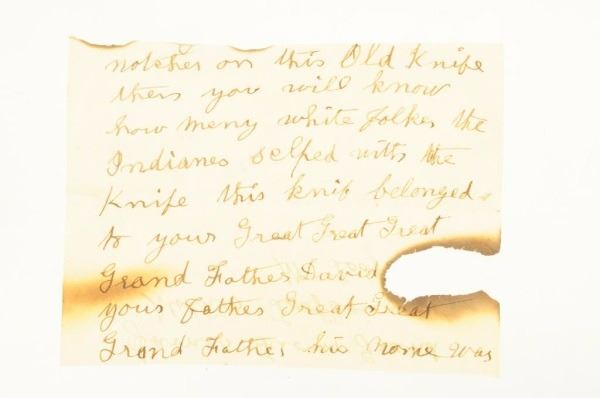 notches on this Old Knife
then you will know
how meny white folkes the
Indianes sclped with the
Knife this knif belonged
to your Great Great Great
Grand Father David
your father Great Great
Grand Father his Name was